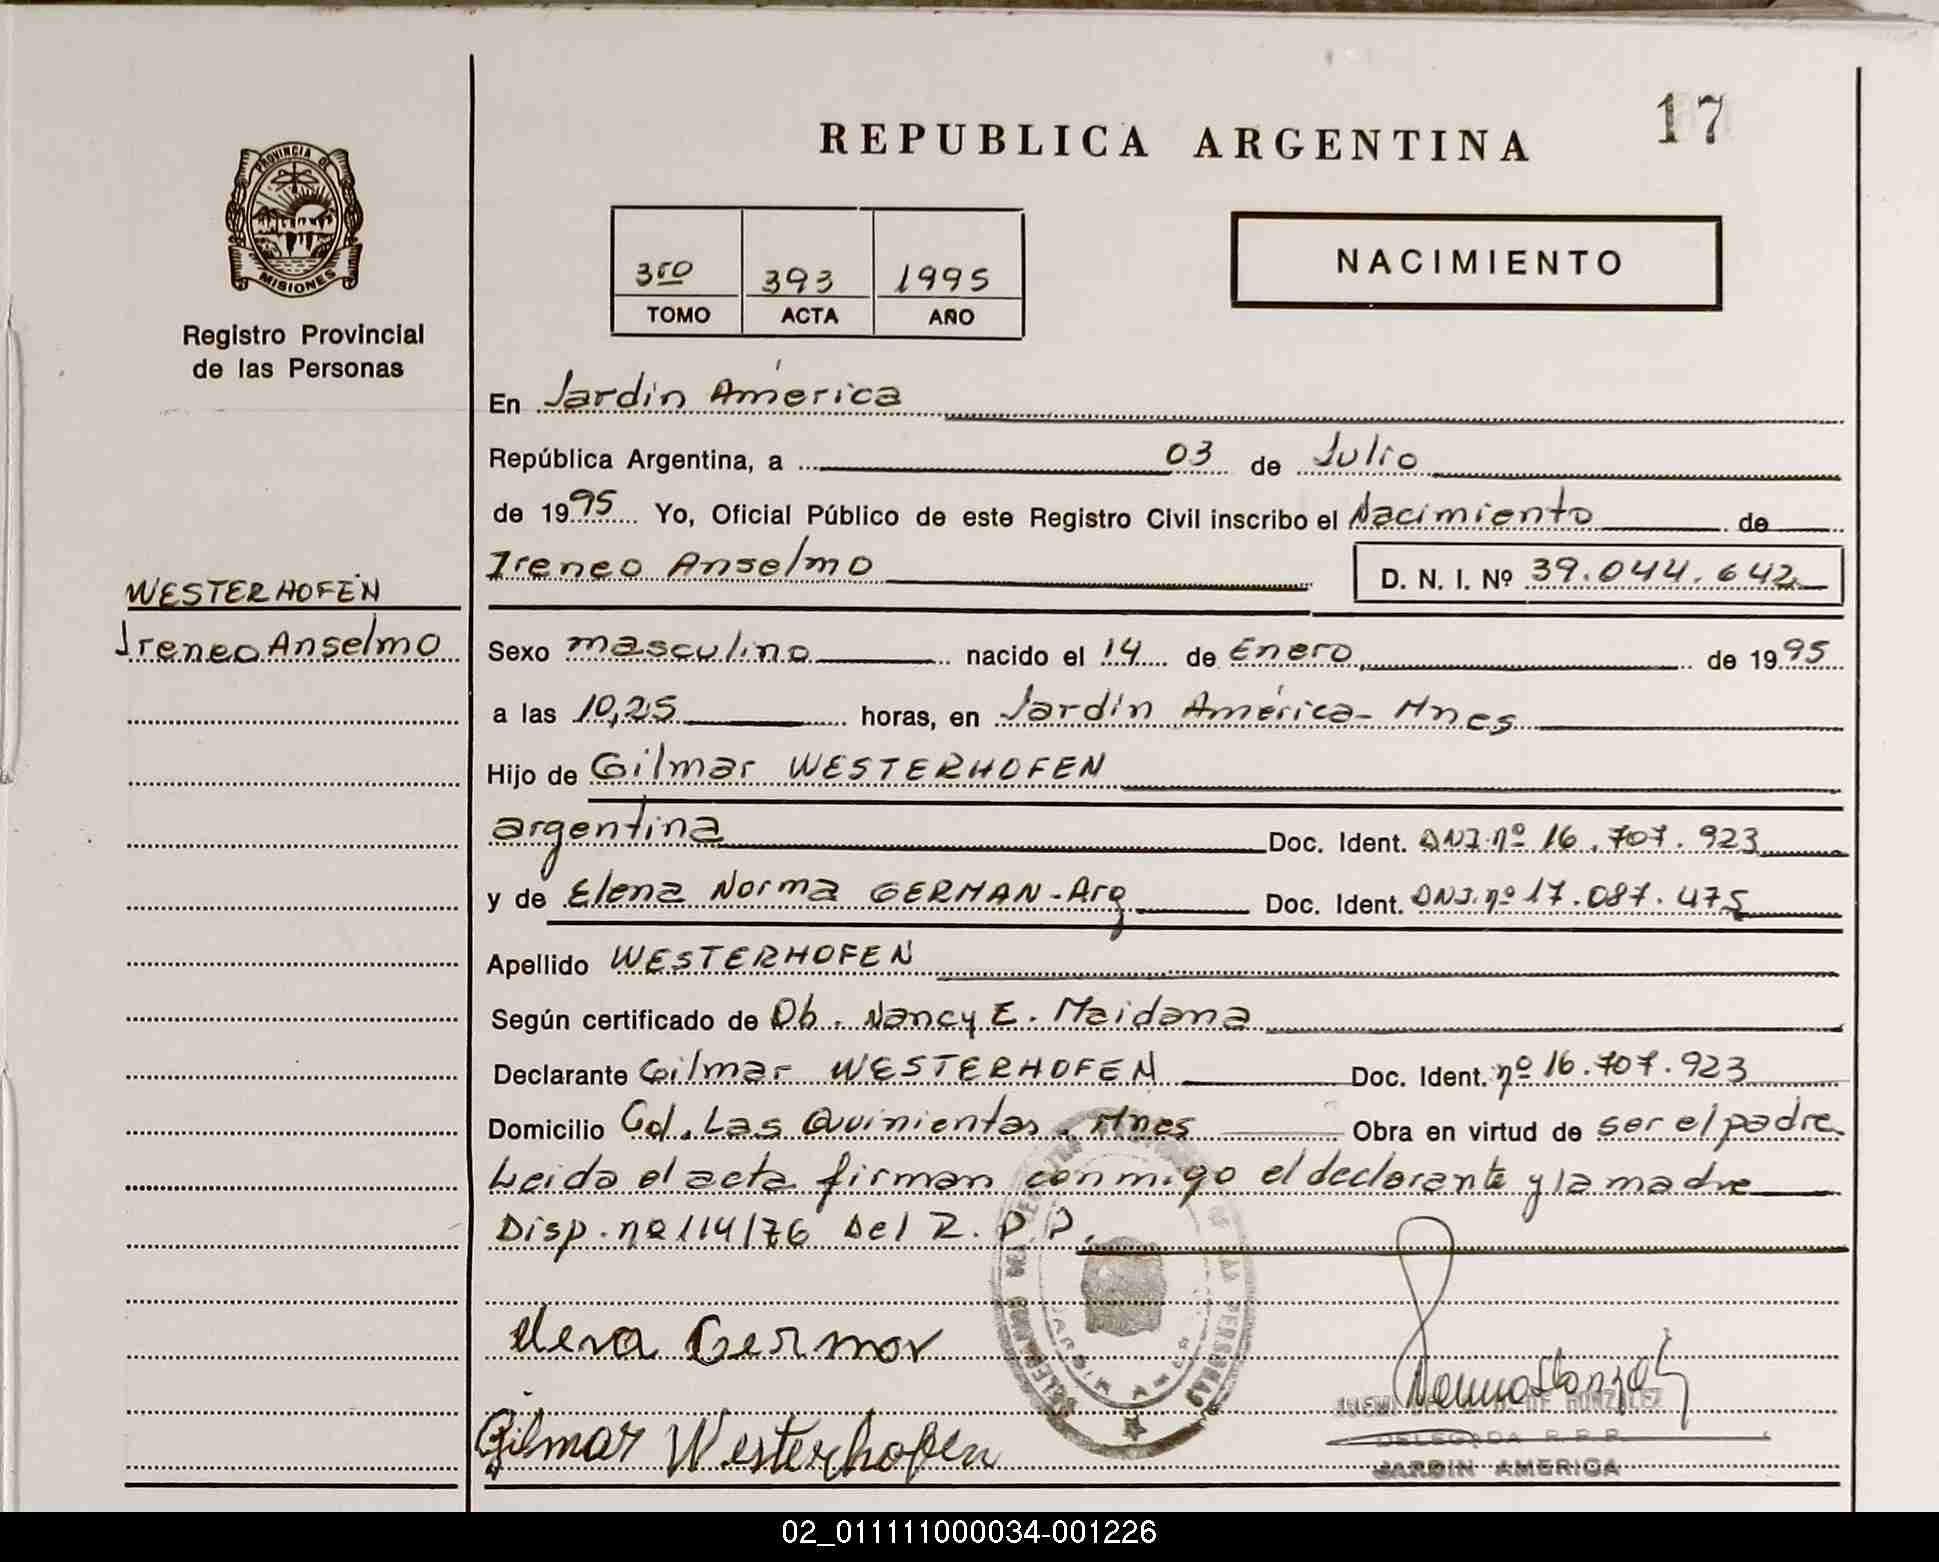 REPUBLICA ARGENTINA
17
PROVINCIA DE
MISIONES
Registro Provincial
de las Personas
3ro 393 1995
TOMO ACTA AÑO
NACIMIENTO
En Jardín América
República Argentina, a 03 de Julio
de 1995 Yo, Oficial Público de este Registro Civil inscribo el Nacimiento de
Ireneo Anselmo D. N. I. Nº 39.044.642
WESTERHOFEN
Ireneo Anselmo
Sexo masculino nacido el 14 de Enero de 1995
a las 10,25 horas, en Jardín América - Mnes
Hijo de Gilmar WESTERHOFEN
argentina Doc. Ident. DNI. nº 16.707.923
y de Elena Norma GERMAN - Arg Doc. Ident. DNI. nº 17.087.475
Apellido WESTERHOFEN
Según certificado de Ob. Nancy E. Maidana
Declarante Gilmar WESTERHOFEN Doc. Ident. nº 16.707.923
Domicilio Col. Las Quinientas. Mnes Obra en virtud de ser el padre
Leida el acta firman conmigo el declarante y la madre
Disp. nº 114/76 Del R. P. P.
Elena German
Gilmar Westerhofen
DE GONZALEZ
DELEGADA R.P.P.
JARDIN AMERICA
02_011111000034-001226